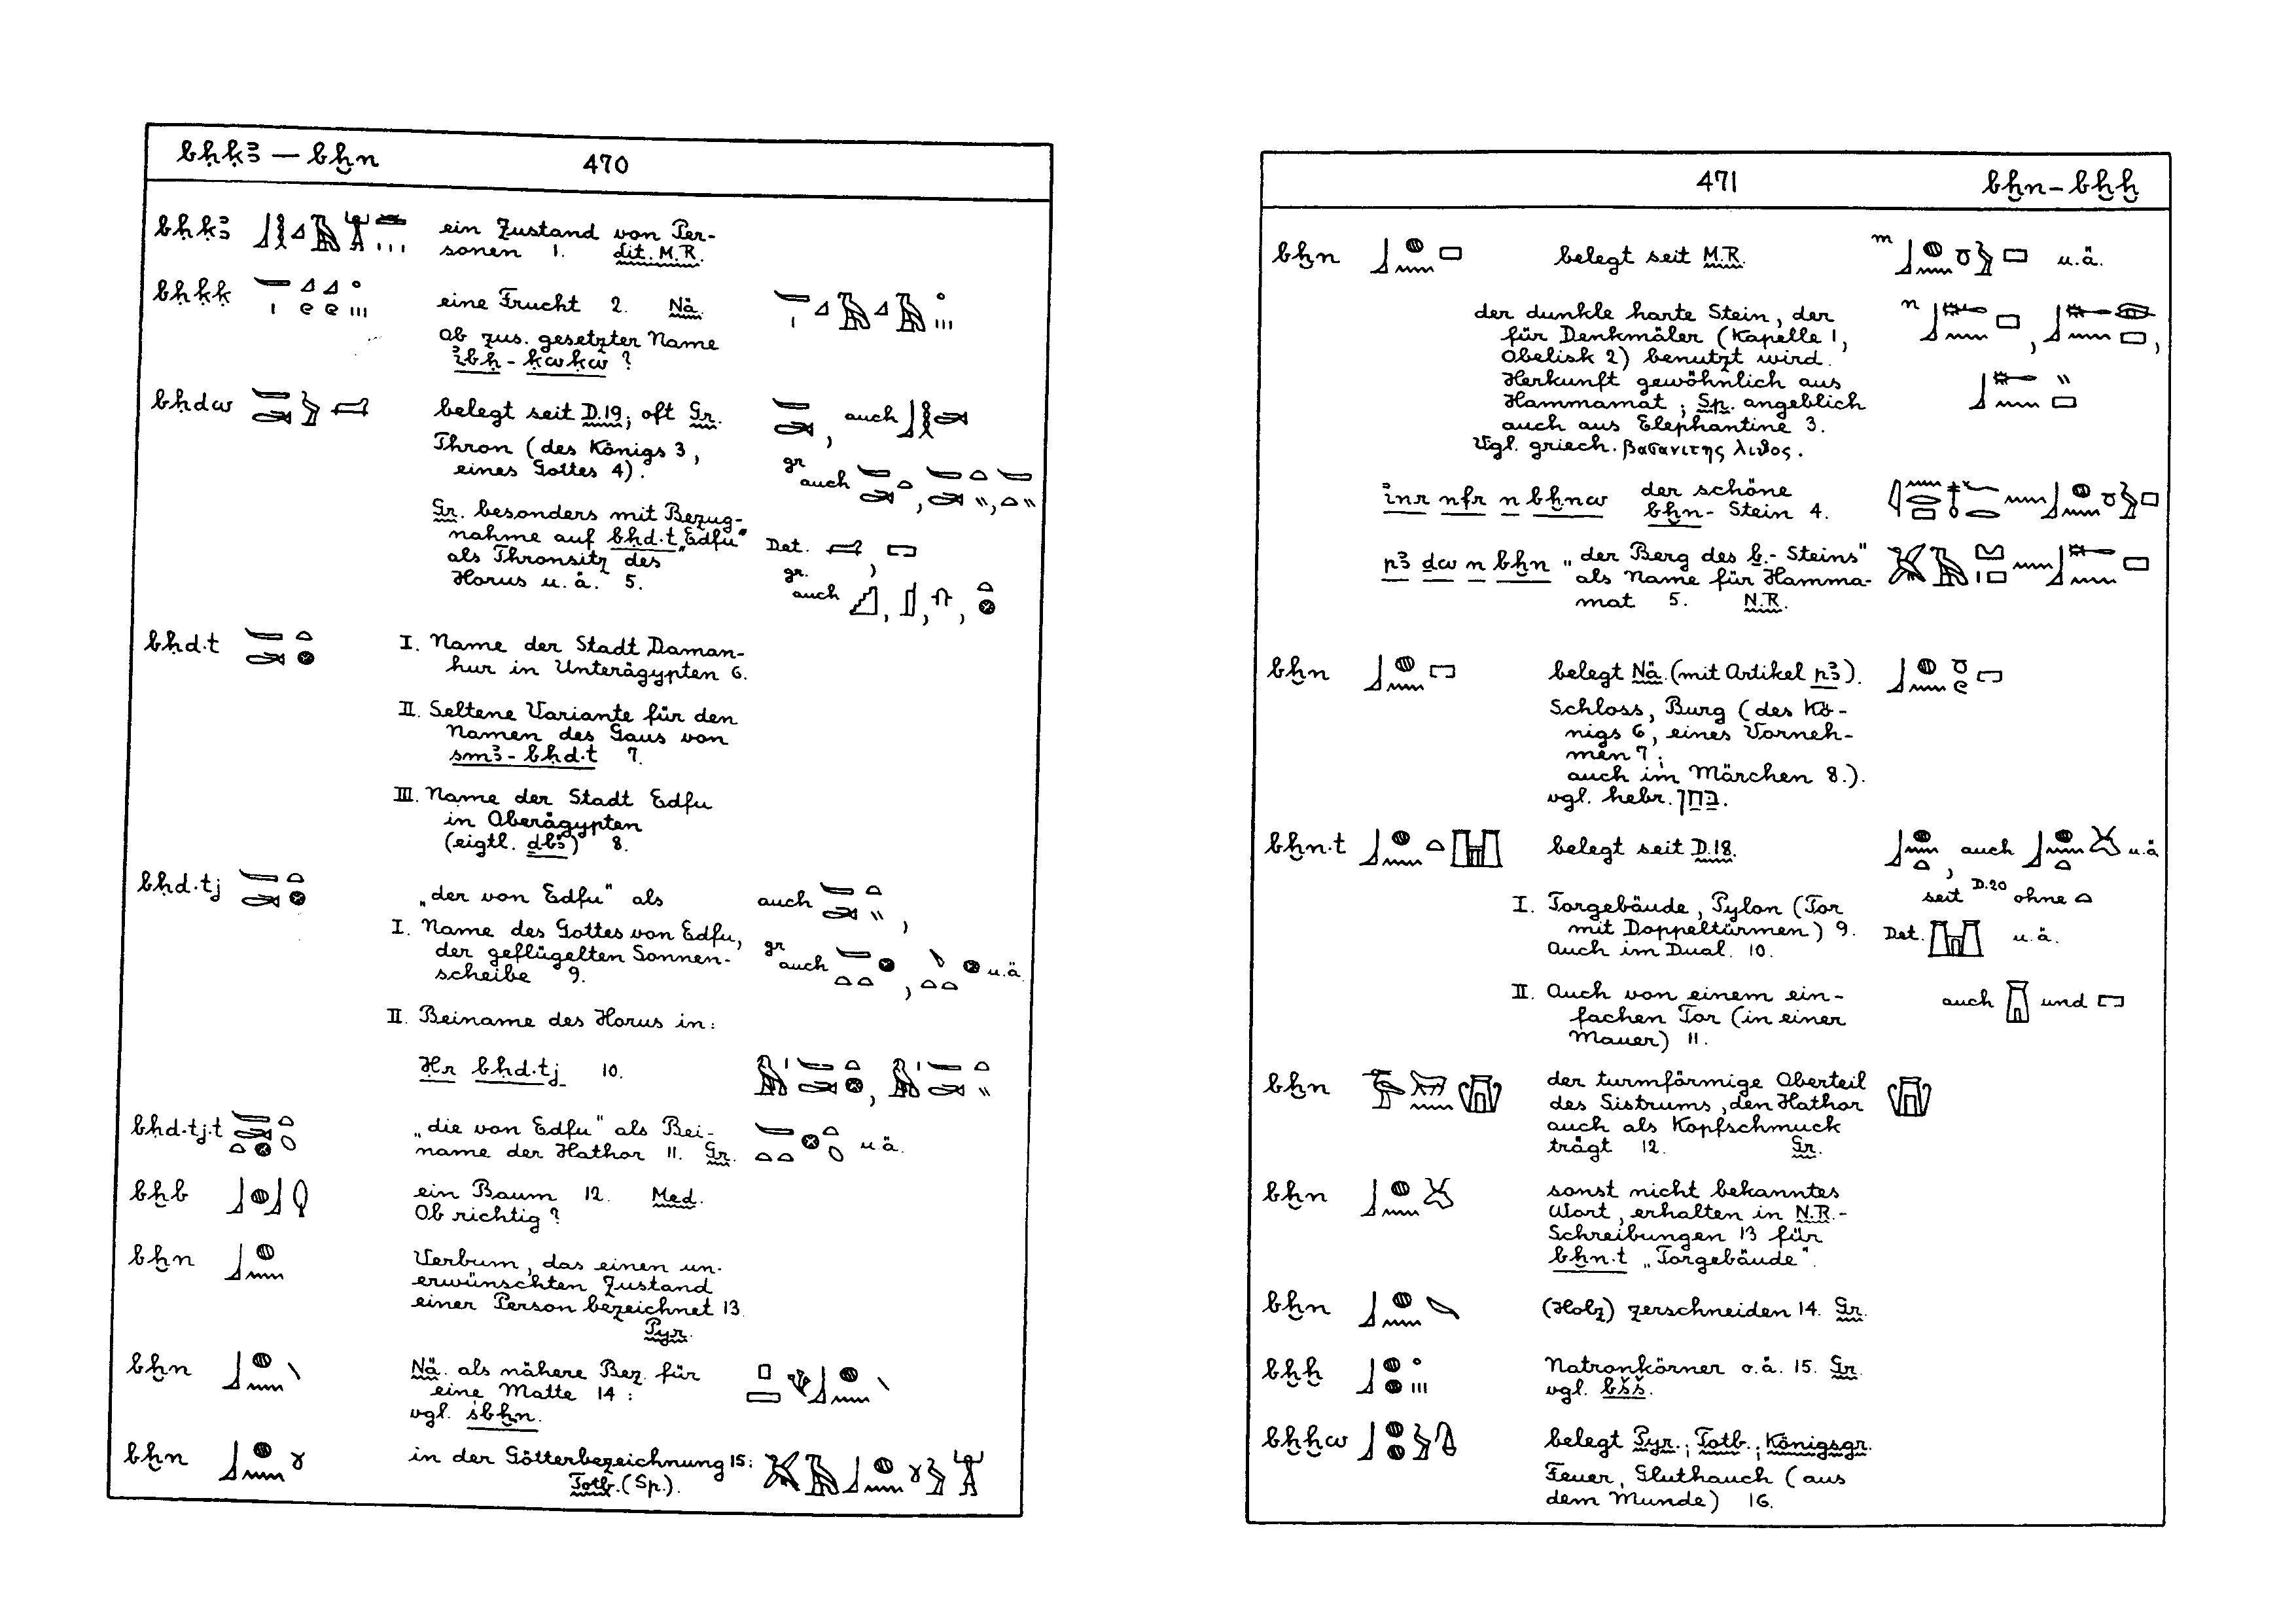 bḥḳꜣ — bẖn 470
bḥḳꜣ ein Zustand von Per-
sonen 1. Lit. M.R.
bḥḳḳ eine Frucht 2. Nä.
Ob zus. gesetzter Name
ỉbḥ - ḳwḳw ?
bḥdw belegt seit D.19; oft Gr. , auch
Thron (des Königs 3,
eines Gottes 4). gr auch , ,
Gr. besonders mit Bezug-
nahme auf bḥd.t „Edfu" Det. ,
als Thronsitz des
Horus u.ä. 5. gr. auch , , ,
bḥd.t I. Name der Stadt Daman-
hur in Unterägypten 6.
II. Seltene Variante für den
Namen des Gaus von
smꜣ - bḥd.t 7.
III. Name der Stadt Edfu
in Oberägypten
(eigtl. dbꜣ) 8.
bḥd.tj „der von Edfu" als auch ,
I. Name des Gottes von Edfu,
der geflügelten Sonnen- gr auch , u.ä.
scheibe 9.
II. Beiname des Horus in:
Ḥr bḥd.tj 10. ,
bḥd.tj.t „die von Edfu" als Bei-
name der Hathor 11. Gr. u.ä.
bẖb ein Baum 12. Med.
Ob richtig?
bẖn Verbum, das einen un-
erwünschten Zustand
einer Person bezeichnet 13
Pyr.
bẖn Nä. als nähere Bez. für
eine Matte 14 :
vgl. śbẖn.
bẖn in der Götterbezeichnung 15:
Totb. (Sp.).
471 bẖn – bẖẖ
bẖn belegt seit M.R. m u.ä.
der dunkle harte Stein, der n , ,
für Denkmäler (Kapelle 1,
Obelisk 2) benutzt wird.
Herkunft gewöhnlich aus
Hammamat; Sp. angeblich
auch aus Elephantine 3.
Vgl. griech. βασανιτης λιθος.
ỉnr nfr n bẖnw der schöne
bẖn- Stein 4.
pꜣ ḏw n bẖn „der Berg des b.- Steins"
als Name für Hamma-
mat 5. N.R.
bẖn belegt Nä. (mit Artikel pꜣ).
Schloss, Burg (des Kö-
nigs 6, eines Vorneh-
men 7;
auch im Märchen 8.).
vgl. hebr. בחן.
bẖn.t belegt seit D.18. , auch u.ä
seit D.20 ohne
I. Torgebäude, Pylon (Tor
mit Doppeltürmen) 9. Det. u.ä.
Auch im Dual. 10.
II. Auch von einem ein- auch und
fachen Tor (in einer
Mauer) 11.
bẖn der turmförmige Oberteil
des Sistrums, den Hathor
auch als Kopfschmuck
trägt 12. Gr.
bẖn sonst nicht bekanntes
Wort, erhalten in N.R.-
Schreibungen 13 für
bẖn.t „Torgebäude".
bẖn (Holz) zerschneiden 14. Gr.
bẖẖ Natronkörner o.ä. 15. Gr.
vgl. bšš.
bẖẖw belegt Pyr.; Totb.; Königsgr.
Feuer, Gluthauch (aus
dem Munde) 16.